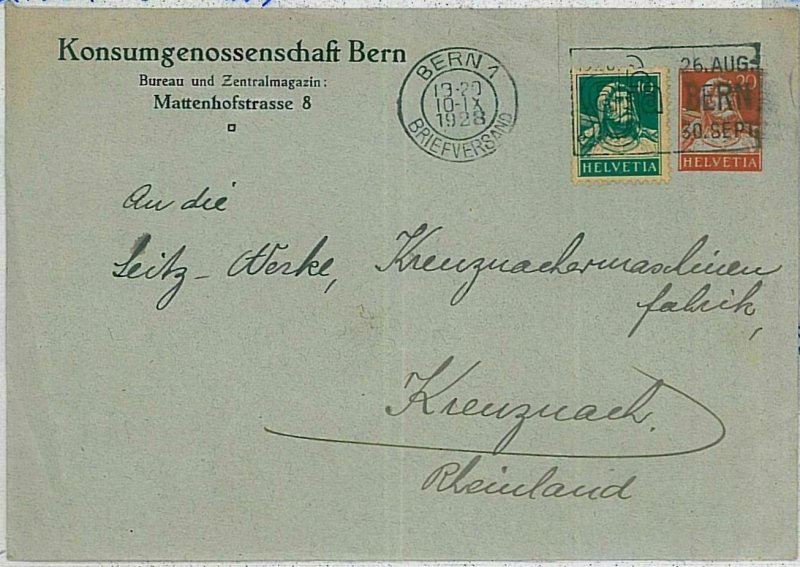 Konsumgenossenschaft Bern
Bureau und Zentralmagazin:
Mattenhofstrasse 8
BERN 1
19-20
10·IX
1928
BRIEFVERSAND
26. AUG.-
BERN
30. SEPT.
10
HELVETIA
20
HELVETIA
An die
Seitz-Werke, Kreuznachermaschinen
fabrik,
Kreuznach.
Rheinland